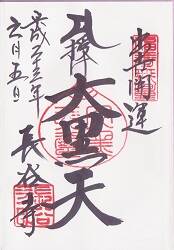 出世開運
奉拝
大黒天
長谷寺
平成二十三年
六月五日